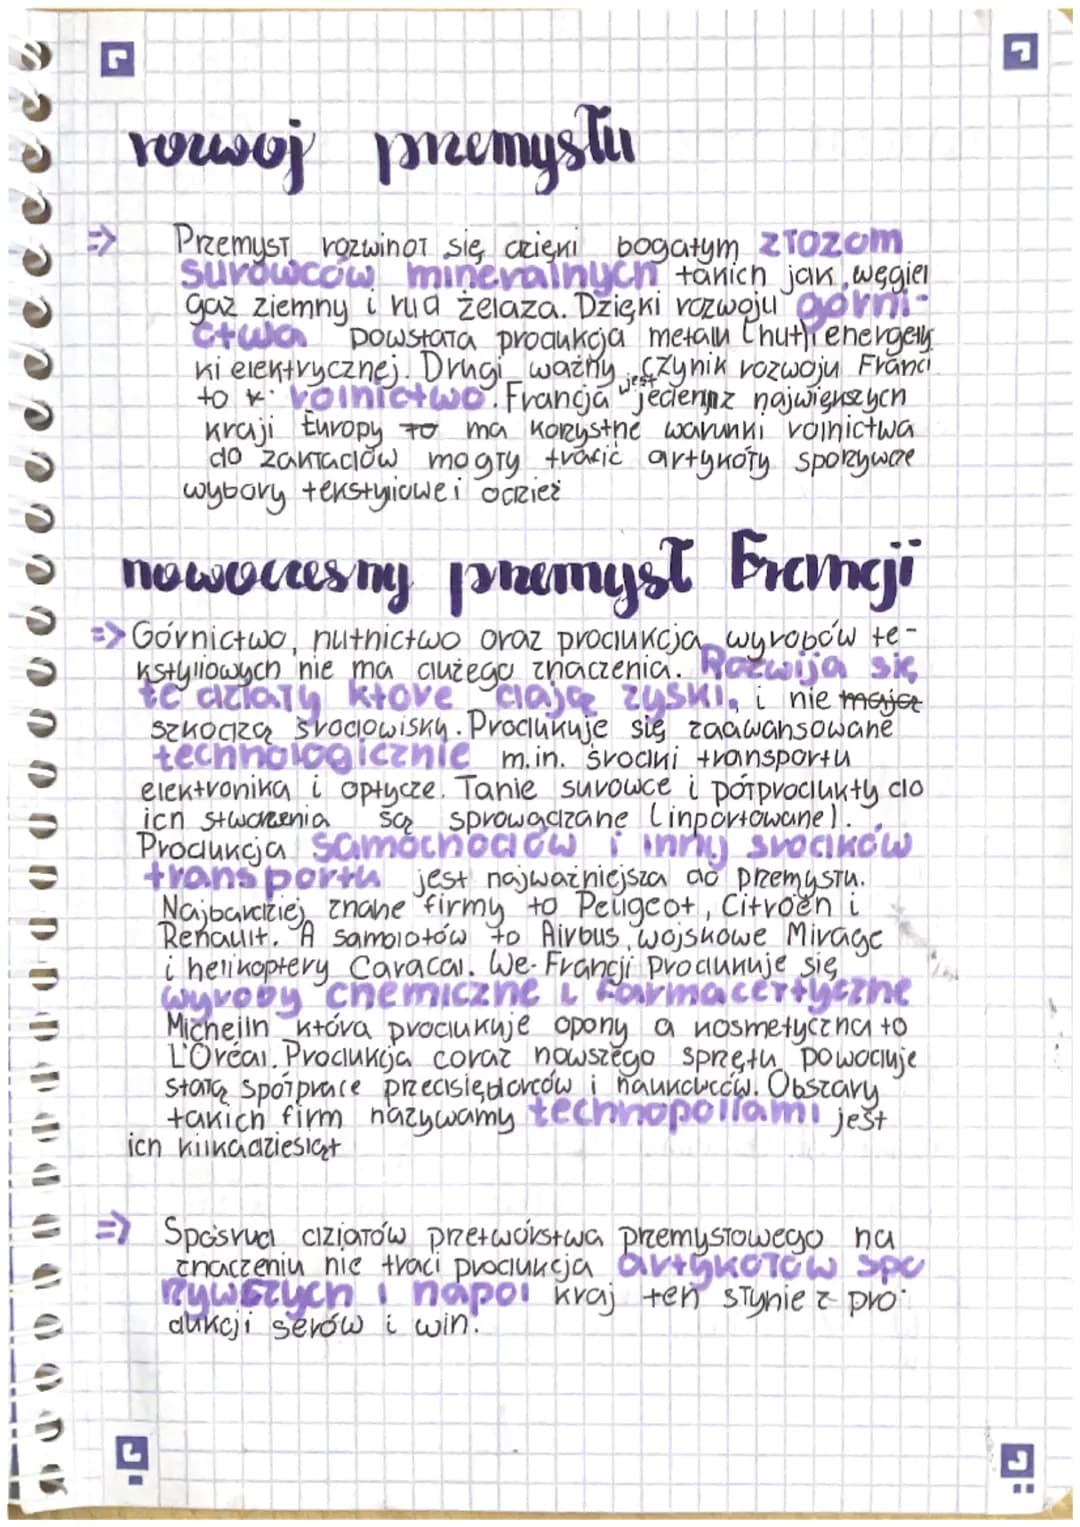 rozwój przemysłu
=> Przemysł rozwinoł się dzięki bogatym złożom
surowców mineralnych takich jak węgiel
gaz ziemny i ruda żelaza. Dzięki rozwoju górni-
ctwa powstała produkcja metalu (huty) i energety
ki elektrycznej. Drugi ważny czynik rozwoju Franci
to rolnictwo. Francja jest jeden z największych
kraji Europy ma korzystne warunki rolnictwa
do zakładów mogły trafić artykóły spożywcze
wybory tekstyliowe i odzież
nowoczesny przemysł Francji
=> Górnictwo, hutnictwo oraz produkcja wyrobów te-
kstyliowych nie ma dużego znaczenia. Rozwija się
te działy które dają zyski, i nie mają
szkodzą środowisku. Produkuje się zaawansowane
technologicznie m.in. środki transportu
elektronika i optycze. Tanie surowce i półprodukty do
ich stworzenia są sprowadzane (inportowane).
Produkcja samochodów i inny środków
transportu jest najważniejsza do przemysłu.
Najbardziej znane firmy to Peugeot, Citroën i
Renault. A samolotów to Airbus, wojskowe Mirage
i helikoptery Caracal. We Francji produkuje się
wyroby chemiczne i farmaceutyczne
Michelin która produkuje opony a kosmetyczna to
L'Oréal. Produkcja coraz nowszego sprzętu powoduje
stałą spółprace przedsiębiorców i naukowców. Obszary
takich firm nazywamy technopoliami jest
ich kilkadziesiąt
=> Spośrud działów przetwórstwa przemysłowego na
znaczeniu nie traci produkcja artykołów spo
żywczych i napoi kraj ten słynie z pro
dukcji serów i win.